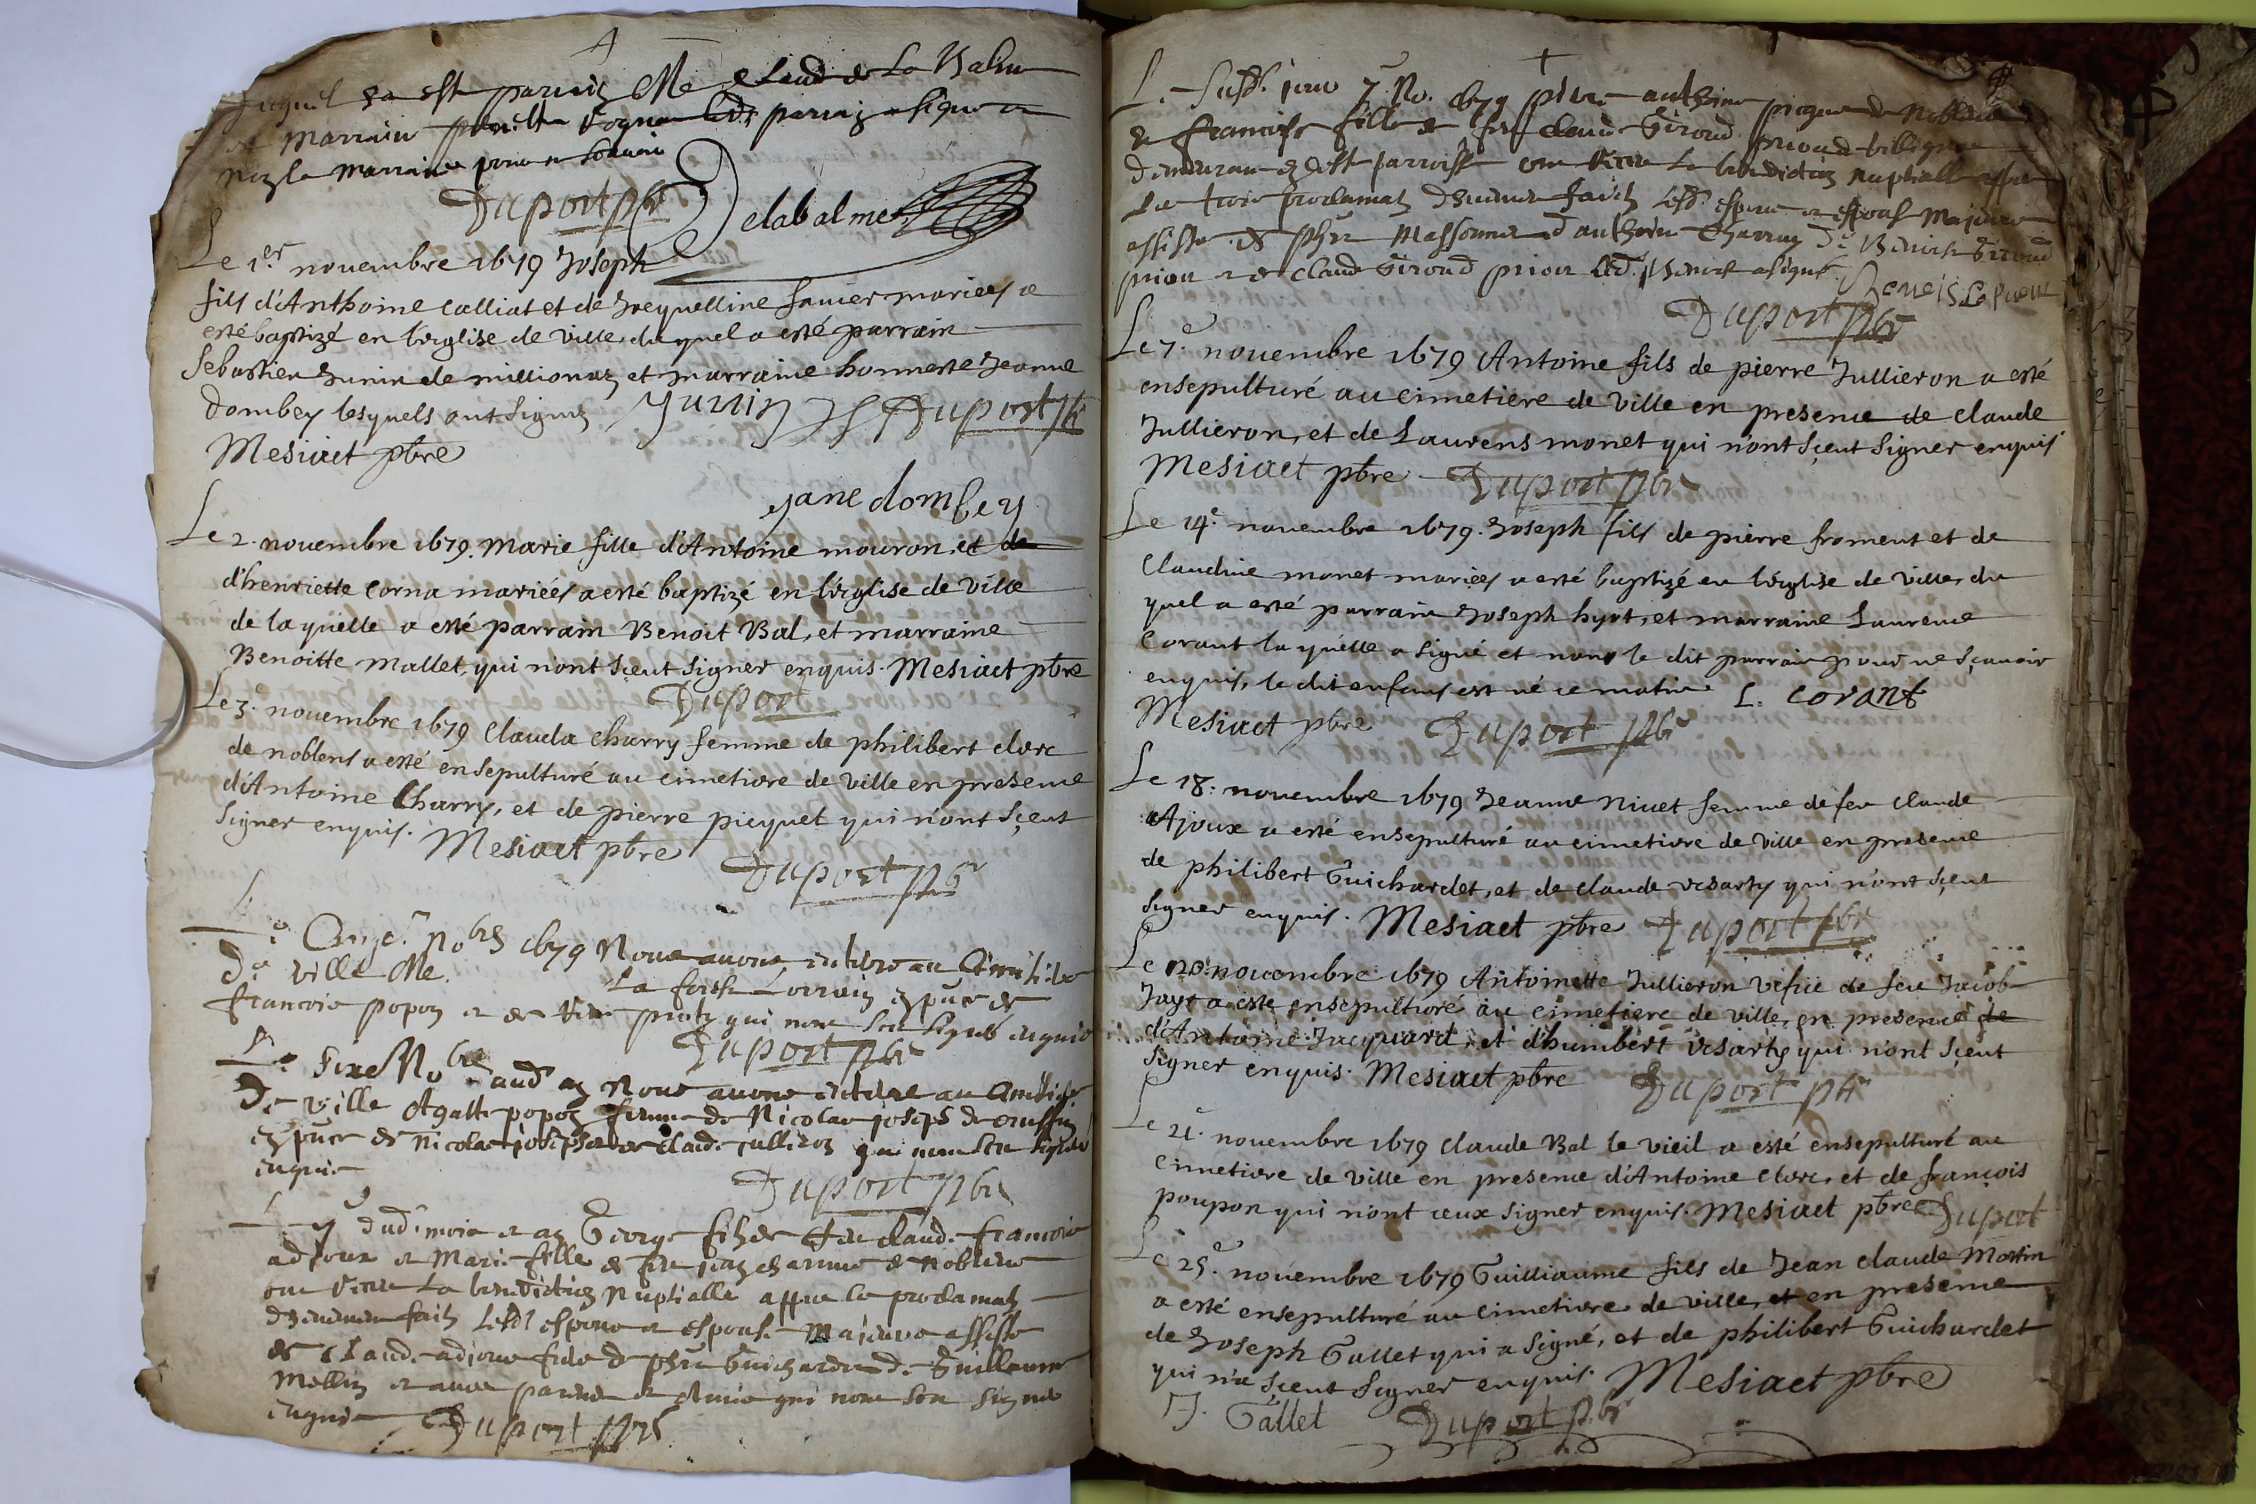 duquel a est parrain Me Claud de La Balme
et Marraine pernette led parrain a signe et
non la marraine pour ne scavoir
Duport pbr Delabalme
Le 1er novembre 1679 Joseph
fils d'Anthoine Calliat et de Jrequelline favier mariéés a
esté baptizé en l'église de ville, du quel a esté parrain
Sebastien Junin de millionas et marraine honneste Jeanne
dombey lesquels ont signés Junin Duport pbr
Mesiaet pbre
Jane dombey
Le 2. novembre 1679. Marie fille d'Antoine mouron et de
d'henriette Corna mariéés a esté baptizé en l'église de ville
de la quelle a esté parrain Benoit Bal, et marraine
Benoitte Mallet, qui n'ont sçeut signer enquis. Mesiaet pbre
Duport
Le 3.e novembre 1679 Clauda Charry femme de philibert clerc
de noblens a esté ensepulturé au cimetiere de ville en presence
d'Antoine Charry, et de pierre picquet qui n'ont sçeut
signer enquis. Mesiaet pbre
Duport pbr
Le Onze.e nobre 1679 Nous avons enterre au Cimitiere
de ville Me La forest Lorrain en pnce de
francois popon et de pnoty qui nont sceu signer enquis
Duport pbr
Le Sixe Nobre aud an Nous avons enterre au Cimitiere
de ville Agatte popon femme de Nicolas joseph de
en pnce de Nicolas joseph et de Claude Jullieron qui nont sceu signer
enquis
Duport pbr
Le 7 dud mois et an George filz de feu Claude francois
adjoux et Marie fille de feu Jean charme de Noblens
ont receu La benediction Nuptialle appres les proclamats
deuement faitz Lesd espoux et espouse Majeurs assistes
de Claude adjoux de phbr Guichardet de Guillaume
Mellin et autres parens et Amis qui nont sceu signer
enquis Duport pbr
Le Susd. jour 7 No. 1679 pierre anthoine picquet de Noblens
et francoise fille de feu Claude Giroud
demeurant en cest parroisse ont receu La benediction nuptialle appres
Les trois proclamats deuement faitz Lesd espoux et espouse Majeurs
assistes de phbr Massonnet d'anthoine Charry de Benoist Giroud
prieur et de Claude Giroud prieur Led. Benoist a signé Beneis Le prieur
Duport pbr
Le 7.e novembre 1679 Antoine fils de pierre Jullieron a esté
ensepulturé au cimetiere de ville en presence de claude
Jullieron, et de Laurens monet qui n'ont sçeut signer enquis
Mesiaet pbre Duport pbr
Le 14.e novembre 1679. Joseph fils de pierre froment et de
Claudine monet mariéés a esté baptizé en l'église de ville, du
quel a esté parrain Joseph hyvt, et marraine Laurence
Corant la quelle a signé et non le dit parrain pour ne sçavoir
enquis, le dit enfans est né ce matin L. corant
Mesiaet pbre Duport pbr
Le 18. novembre 1679 Jeanne Nivet femme de feu Claude
Ajoux a esté ensepulturé au cimetiere de ville en presence
de philibert Guichardet, et de claude vesarty qui n'ont sçeut
signer enquis. Mesiaet pbre Duport pbr
Le 20. novembre 1679 Antoinette Jullieron vefue de feu Jacob
Jayr a esté ensepulturé au cimetiere de ville, en presence de
d'Antoine Jacquard, et d'humbert vesarty qui n'ont sçeut
signer enquis. Mesiaet pbre Duport pbr
Le 21. novembre 1679 Claude Bal le vieil a esté ensepulturé au
cimetiere de ville en presence d'Antoine clerc, et de françois
poupon qui n'ont ceux signer enquis. Mesiaet pbre Duport
Le 25.e novembre 1679 Guilliaume fils de Jean claude Morin
a esté ensepulturé au cimetiere de ville, et en presence
de Joseph Gallet qui a signé, et de philibert Guichardet
qui n'a sçeut signer enquis. Mesiaet pbre
J. Gallet Duport pbr